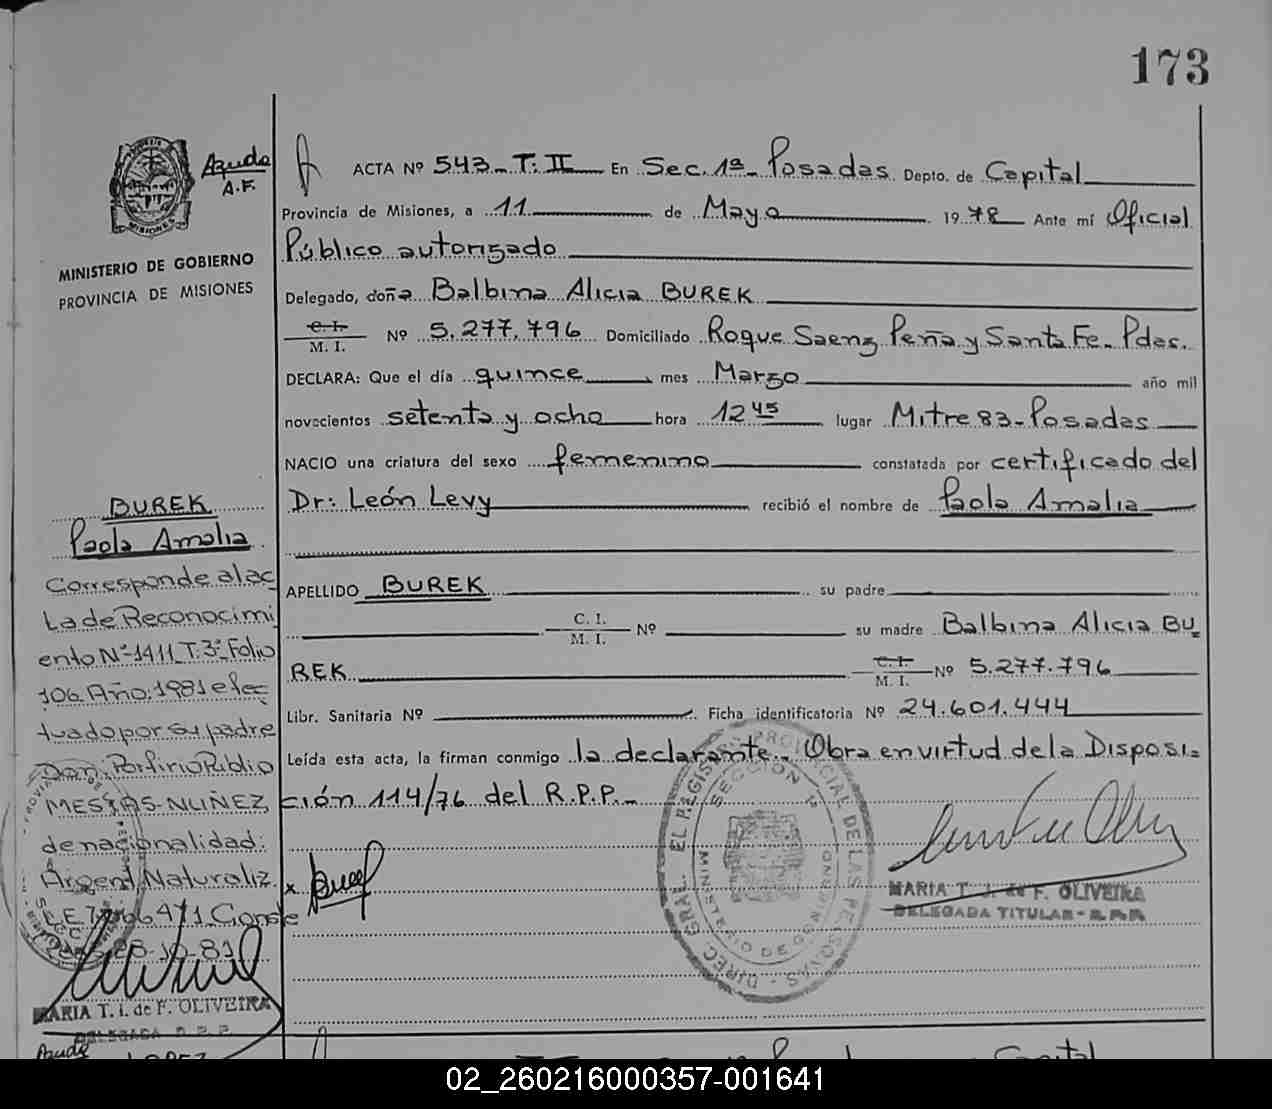 173
Aguda
A.F.
MINISTERIO DE GOBIERNO
PROVINCIA DE MISIONES
ACTA Nº 543-T: II En Sec. 1ª- Posadas Depto. de Capital
Provincia de Misiones, a 11 de Mayo 1978 Ante mí Oficial
Público autorizado
Delegado, doña Balbina Alicia BUREK
C. I.
M. I. Nº 5.277.796 Domiciliado Roque Saenz Peña y Santa Fe- Pdas.
DECLARA: Que el día quince mes Marzo año mil
novecientos setenta y ocho hora 12 45 lugar Mitre 83- Posadas
NACIO una criatura del sexo femenino constatada por certificado del
Dr: León Levy recibió el nombre de Paola Amalia
APELLIDO BUREK su padre
C. I.
M. I. Nº su madre Balbina Alicia BU
REK C. I.
M. I. Nº 5.277.796
Libr. Sanitaria Nº Ficha identificatoria Nº 24.601.444
Leída esta acta, la firman conmigo la declarante- Obra en virtud de la Disposi-
ción 114/76 del R.P.P.-
MARIA T. J. de F. OLIVEIRA
DELEGADA TITULAR - R.P.P.
DIREC. GRAL. EL REGISTRO PROVINCIAL DE LAS PERSONAS
SECCION 1ª
MINISTERIO DE GOBIERNO
BUREK
Paola Amalia
Corresponde al ac
ta de Reconocimi
ento Nº 1411 T.3º Folio
106 Año: 1981 efec
tuado por su padre
Don: Porfirio Publio
MESTAS-NUÑEZ
de nacionalidad:
Argent. Naturaliz.
28-10-81
MARIA T. J. de F. OLIVEIRA
DELEGADA R. P. P.
Aguda
LOPEZ
Capital
02_260216000357-001641